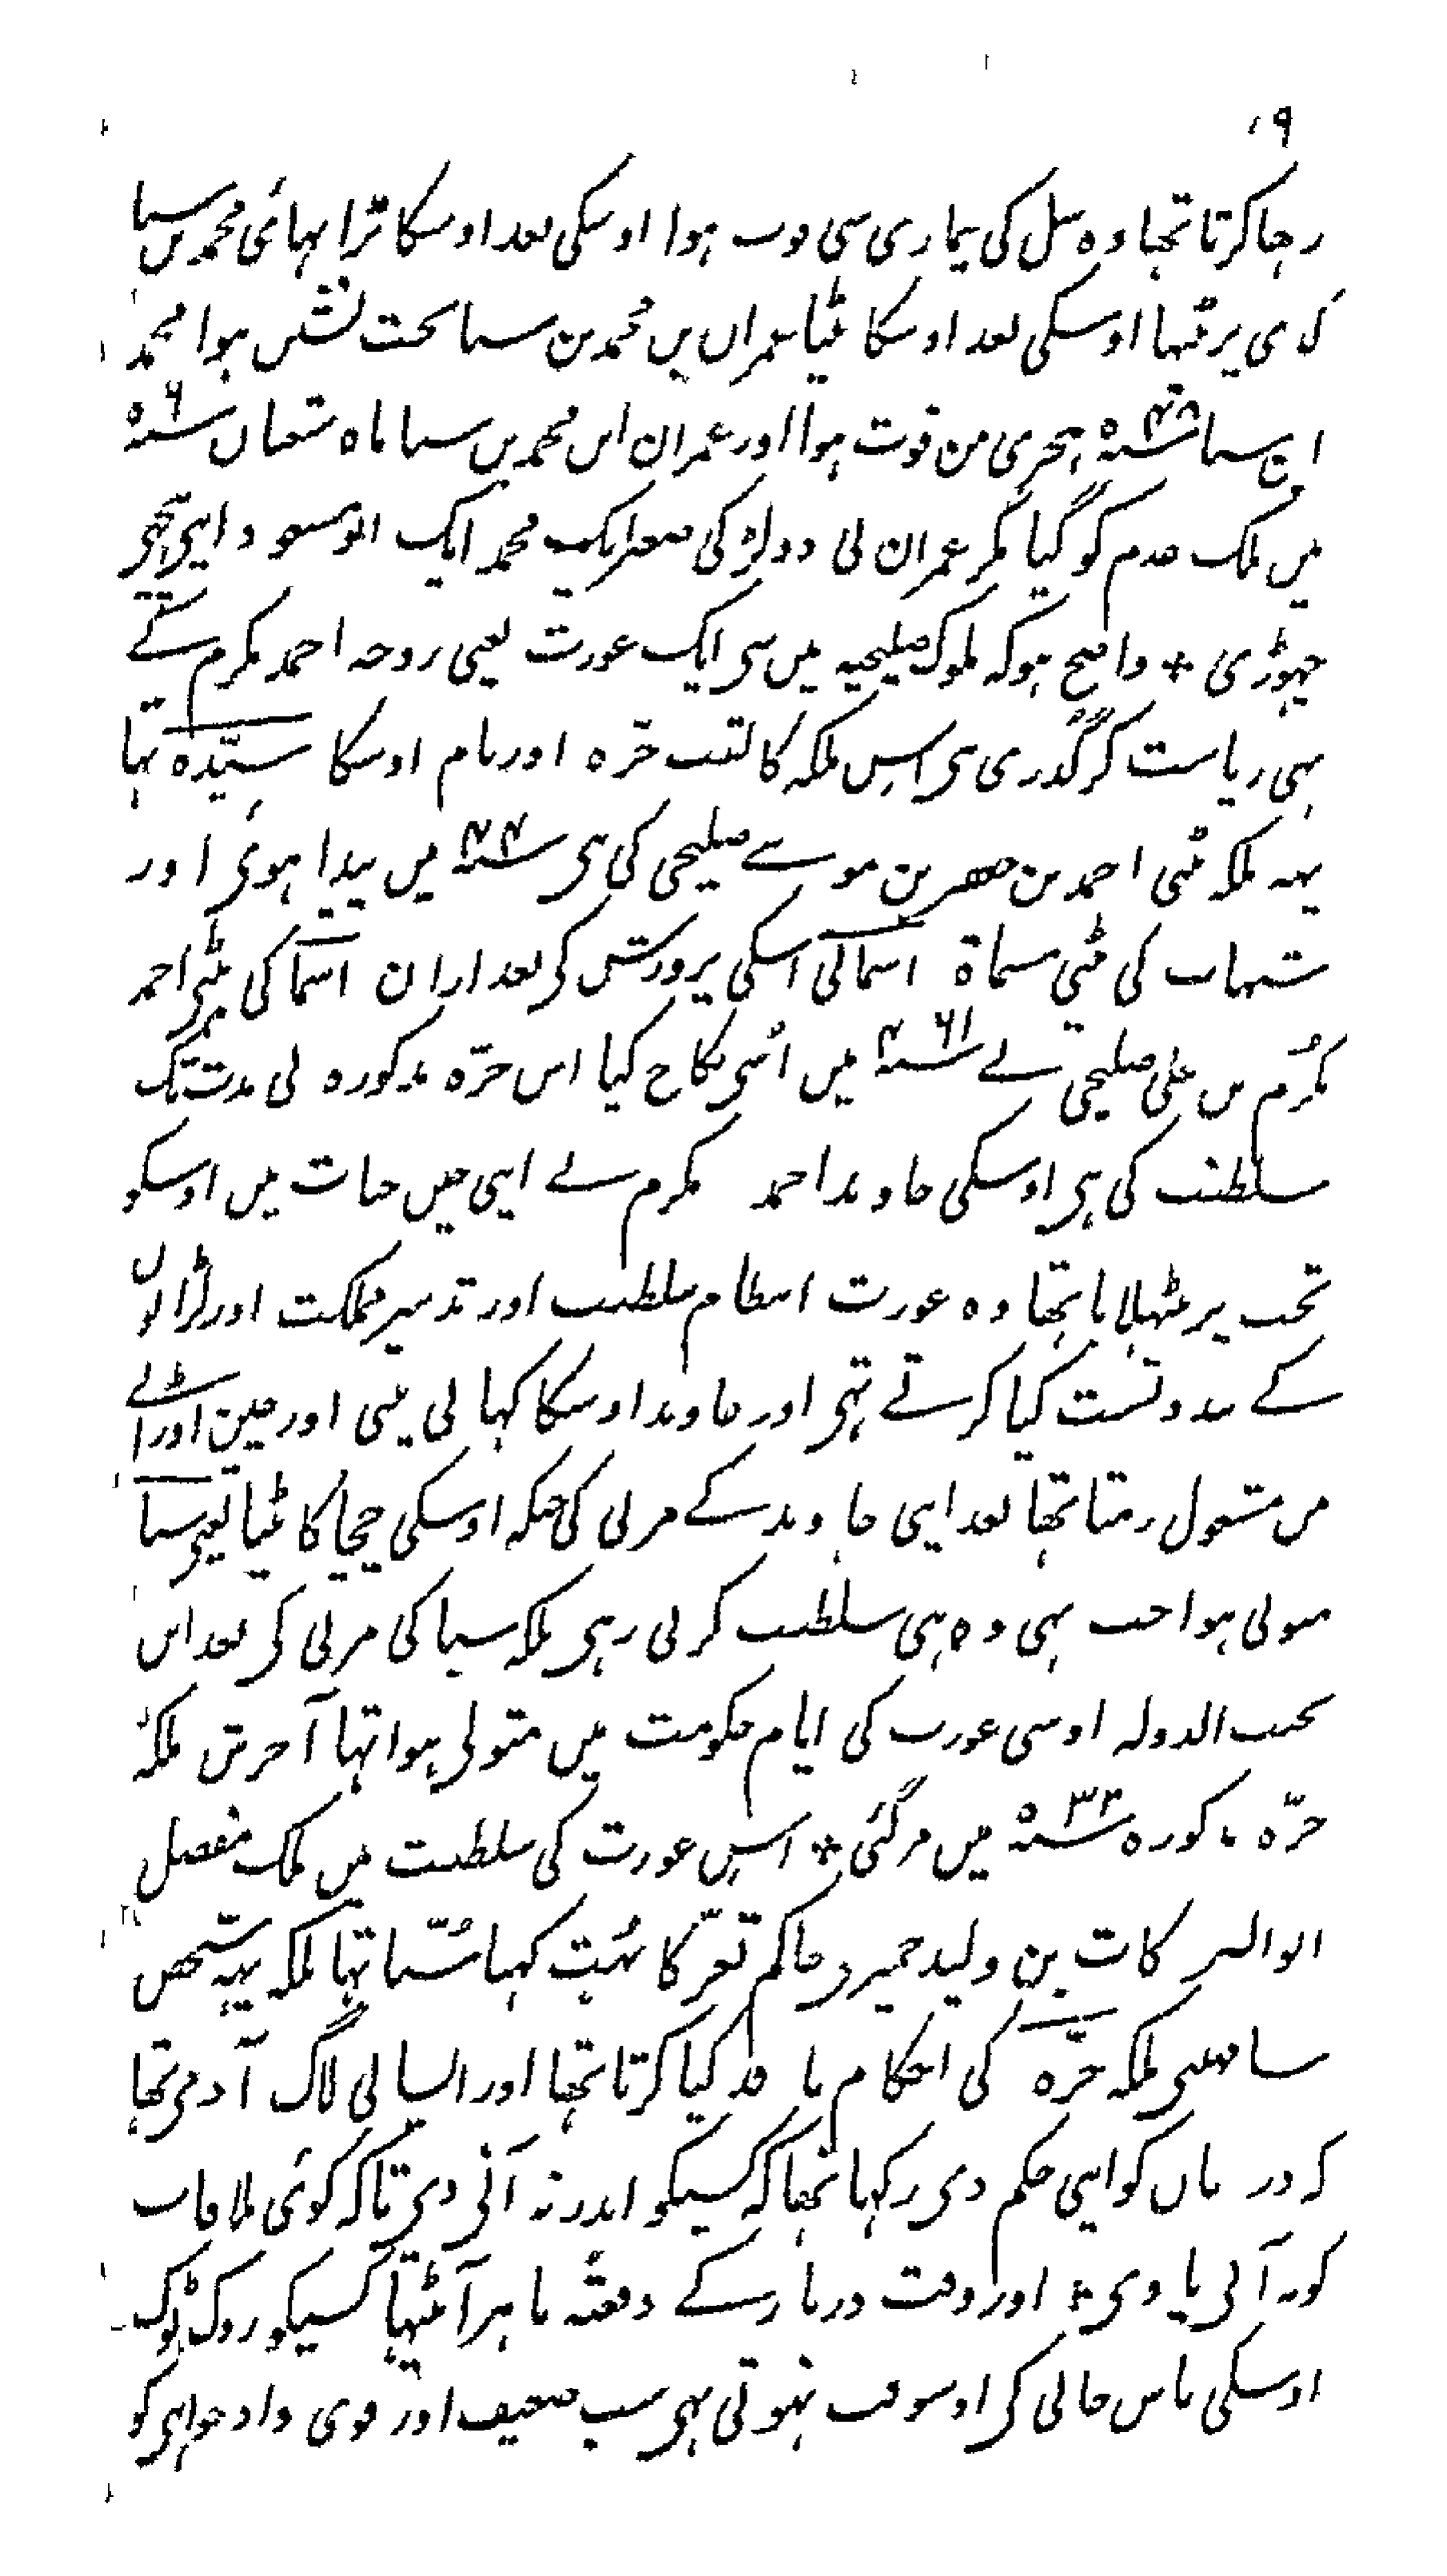 ۹
رہا کرتا تھا وہ سل کی بیماری سی فوت ہوا اوسکی بعد اوسکا بڑا بہائی محمد بن سبا
گدی پر بیٹہا اوسکی بعد اوسکا بیٹا عمران بن محمد بن سبا تخت نشین ہوا محمد
ابن سبا سنہ ۵۴۸ ہجری من فوت ہوا اور عمران ابن محمد بن سبا ماہ شعبان سنہ ۵۶۰
میں ملک عدم کو گیا مگر عمران نی دو لڑکی صغیر ایک محمد ایک ابو سعود اپنی پیچھی
چہوڑی * واضح ہو کہ ملوک صلیحیہ میں سی ایک عورت یعنی زوجہ احمد مکرم کے نے
بہی ریاست کر گذری ہی اس ملکہ کا لقب حرّہ اور نام اوسکا سیّدہ تہا
یہہ ملکہ بیٹی احمد بن جعفر بن موسے صلیحی کی ہی سنہ ۴۴۰ میں پیدا ہوئی اور
شہاب کی بیٹی مسماۃ اسما نی اسکی پرورش کی بعد ازان اسما کی بیٹی احمد
مکرّم بن علی صلیحی نے سنہ ۴۶۱ میں اُسی نکاح کیا اس حرّہ مذکورہ نی مدت تک
سلطنت کی ہی اوسکی خاوند احمد مکرم نے اپنی حین حیات میں اوسکو
تخت پر بٹہلایا تھا وہ عورت انتظام سلطنت اور تدبیر مملکت اور لڑائیوں
کے بندوبست کیا کرتے تہی اور خاوند اوسکا کہانی پینی اور چین اوڑانے
من مشغول رہتا تھا بعد اپنی خاوند کے مرنی کی جبکہ اوسکی چچا کا بیٹا یعنی سبا
متولی ہوا جب بہی وہ ہی سلطنت کرتی رہی بلکہ سبا کی مرنی کی بعد ابن
نجیب الدولہ اوسی عورت کی ایام حکومت میں متولی ہوا تہا آخرش ملکہ
حرّہ مذکورہ سنہ ۵۳۲ میں مر گئی * اس عورت کی سلطنت میں ملک مفضل
ابو البرکات بن ولید حمیری حاکم تعزّ کا بہت کہا سُنا تہا بلکہ یہہ شخص
سامہنی ملکہ حرّہ کی احکام نافذ کیا کرتا تھا اور ایسا بی لاگ آدمی تھا
کہ دربان کو اپنی حکم دی رکہا تھا کہ کسیکو اندر نہ آنی دی تاکہ کوئی ملاقات
کو نہ آنی پاوی * اور وقت دربار کے دفعۃً باہر آ بیٹہتا کسیکو روک ٹوک
اوسکی پاس جانی کی اوسوقت نہوتی تہی سب ضعیف اور قوی دادخواہی کو